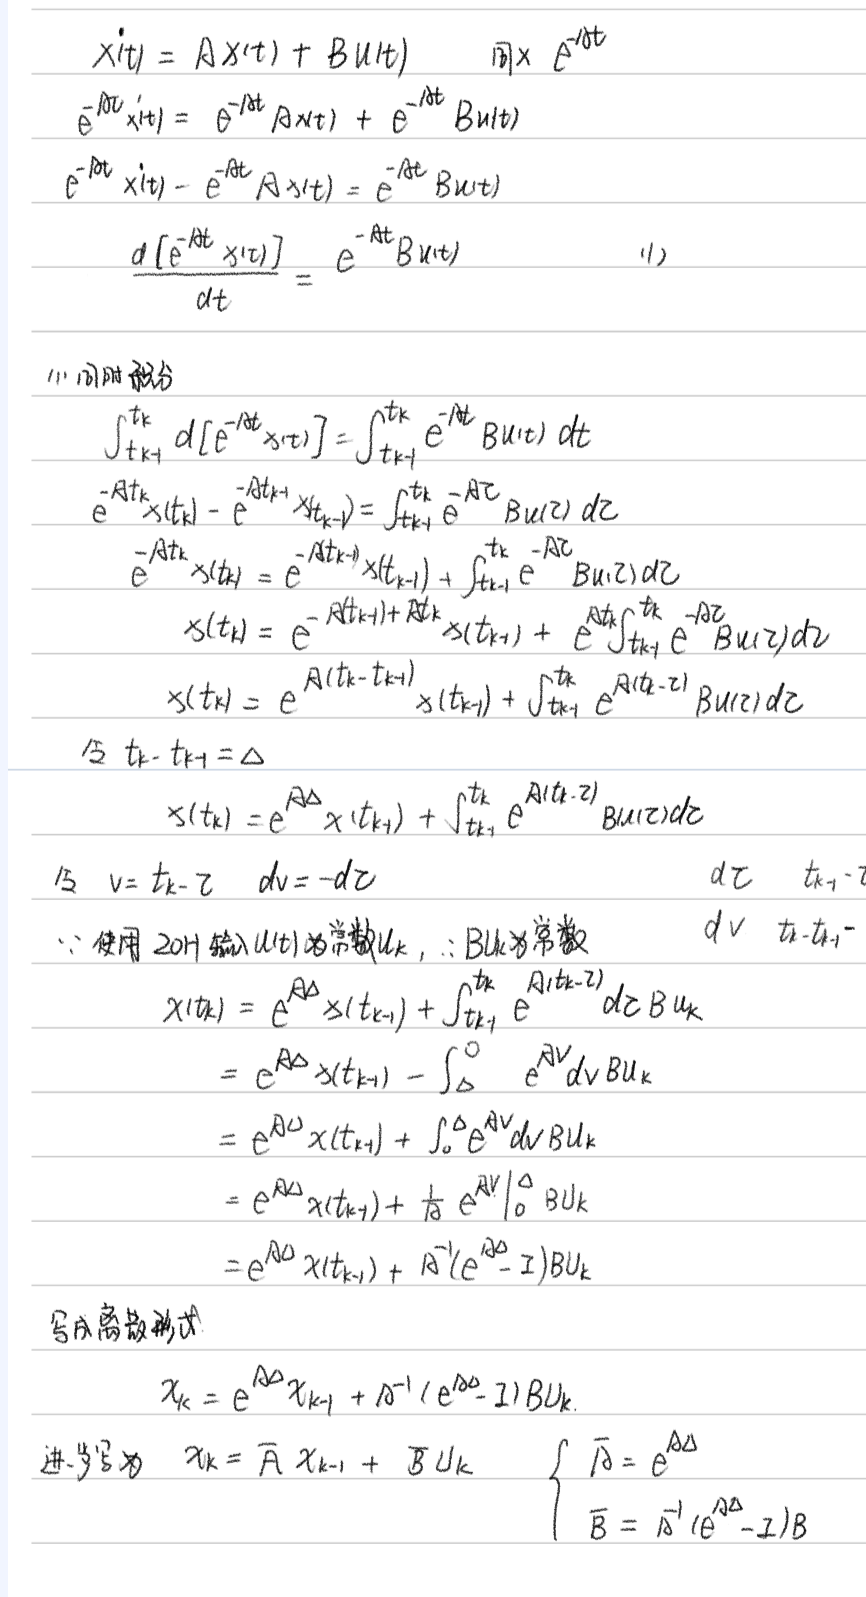 ẋ(t) = Ax(t) + Bu(t) 同× e^{-At}
e^{-Aτ} ẋ(t) = e^{-At} Ax(t) + e^{-At} Bu(t)
e^{-At} ẋ(t) - e^{-At} Ax(t) = e^{-At} Bu(t)
d[e^{-At} x(t)] / dt = e^{-At} Bu(t) (1)
(1) 同时积分
∫_{t_{k-1}}^{t_k} d[e^{-At} x(t)] = ∫_{t_{k-1}}^{t_k} e^{-At} Bu(t) dt
e^{-At_k} x(t_k) - e^{-At_{k-1}} x(t_{k-1}) = ∫_{t_{k-1}}^{t_k} e^{-Aτ} Bu(τ) dτ
e^{-At_k} x(t_k) = e^{-A(t_{k-1})} x(t_{k-1}) + ∫_{t_{k-1}}^{t_k} e^{-Aτ} Bu(τ) dτ
x(t_k) = e^{-A(t_{k-1}) + At_k} x(t_{k-1}) + e^{At_k} ∫_{t_{k-1}}^{t_k} e^{-Aτ} Bu(τ) dτ
x(t_k) = e^{A(t_k - t_{k-1})} x(t_{k-1}) + ∫_{t_{k-1}}^{t_k} e^{A(t_k-τ)} Bu(τ) dτ
令 t_k - t_{k-1} = Δ
x(t_k) = e^{AΔ} x(t_{k-1}) + ∫_{t_{k-1}}^{t_k} e^{A(t_k-τ)} Bu(τ) dτ
令 v = t_k - τ dv = -dτ dτ t_{k-1} -
∵ 使用 ZOH 输入u(t)为常数u_k, ∴ Bu_k为常数 dv t_k - t_{k-1} -
x(t_k) = e^{AΔ} x(t_{k-1}) + ∫_{t_{k-1}}^{t_k} e^{A(t_k-τ)} dτ B u_k
= e^{AΔ} x(t_{k-1}) - ∫_Δ^0 e^{Av} dv B u_k
= e^{AΔ} x(t_{k-1}) + ∫_0^Δ e^{Av} dv B u_k
= e^{AΔ} x(t_{k-1}) + 1/A e^{Av} |_0^Δ B u_k
= e^{AΔ} x(t_{k-1}) + A^{-1} (e^{AΔ} - I) B u_k
写成离散形式
x_k = e^{AΔ} x_{k-1} + A^{-1} (e^{AΔ} - I) B u_k.
进一步写为 x_k = Ā x_{k-1} + B̄ u_k { Ā = e^{AΔ}
B̄ = A^{-1} (e^{AΔ} - I) B